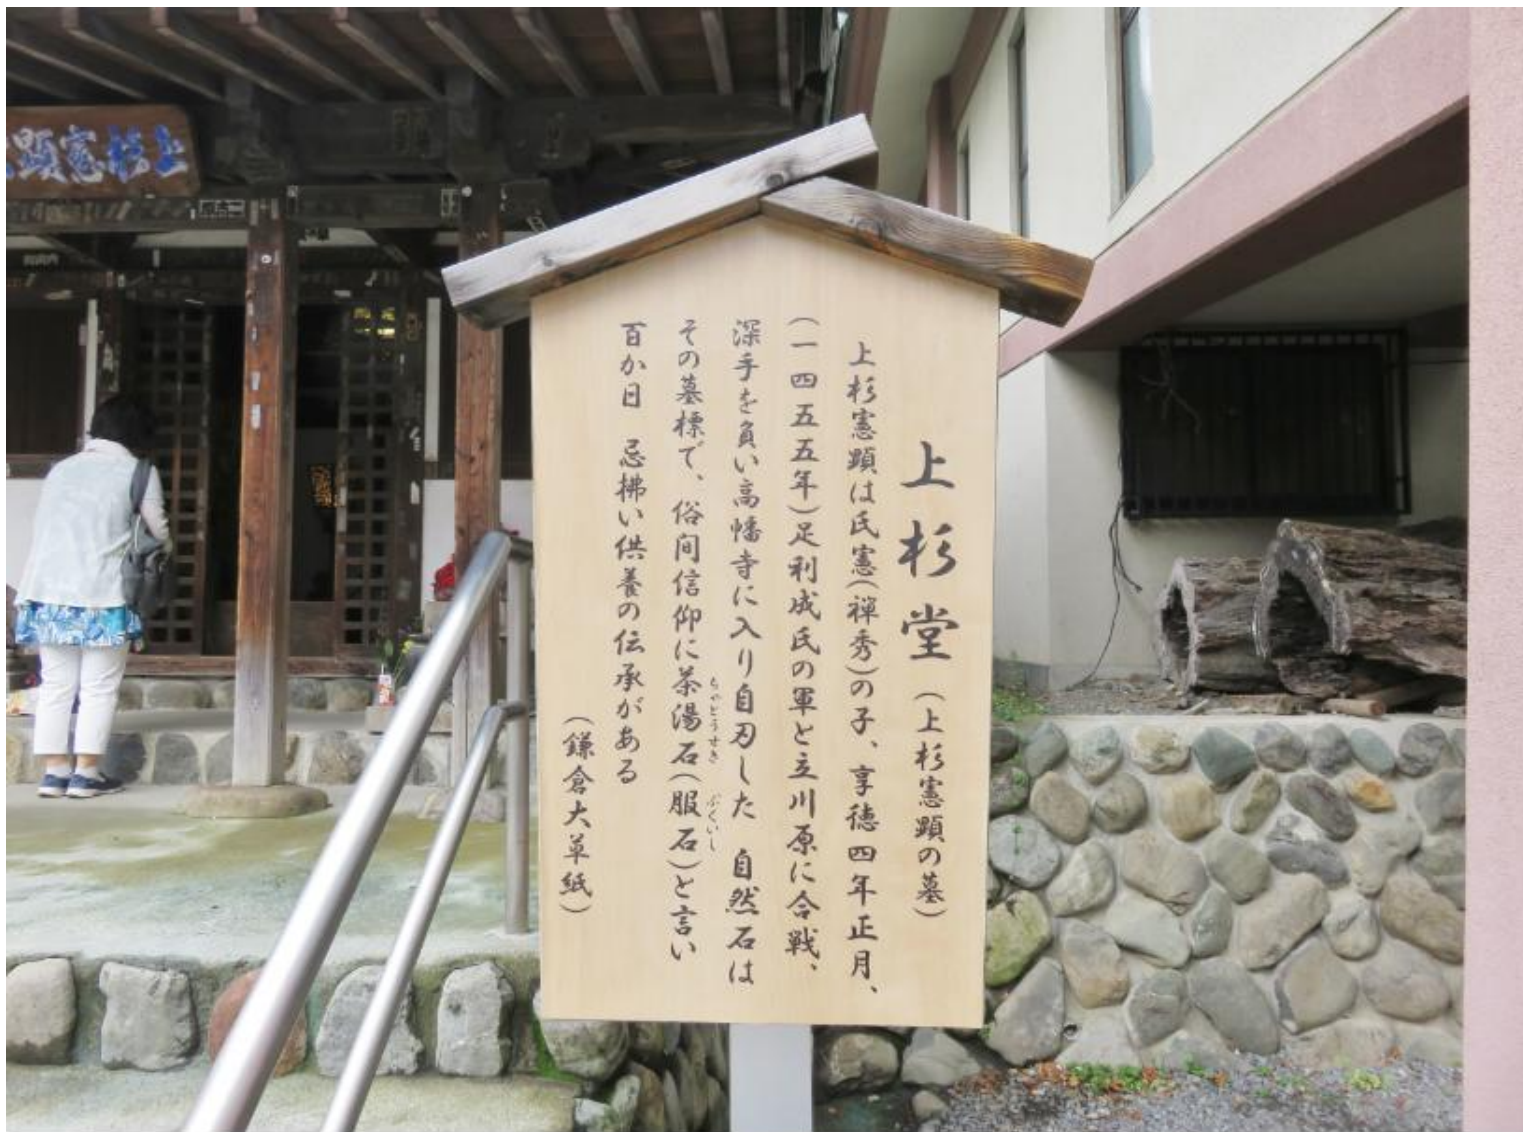 上杉堂(上杉憲顕の墓)
上杉憲顕は氏憲(禅秀)の子、享徳四年正月、
(一四五五年)足利成氏の軍と立川原に合戦、
深手を負い高幡寺に入り自刃した 自然石は
その墓標で、俗間信仰に茶湯石(服石)と言い
ちゃどうせき ぶくいし
百か日 忌払い供養の伝承がある
(鎌倉大草紙)
上杉憲顕